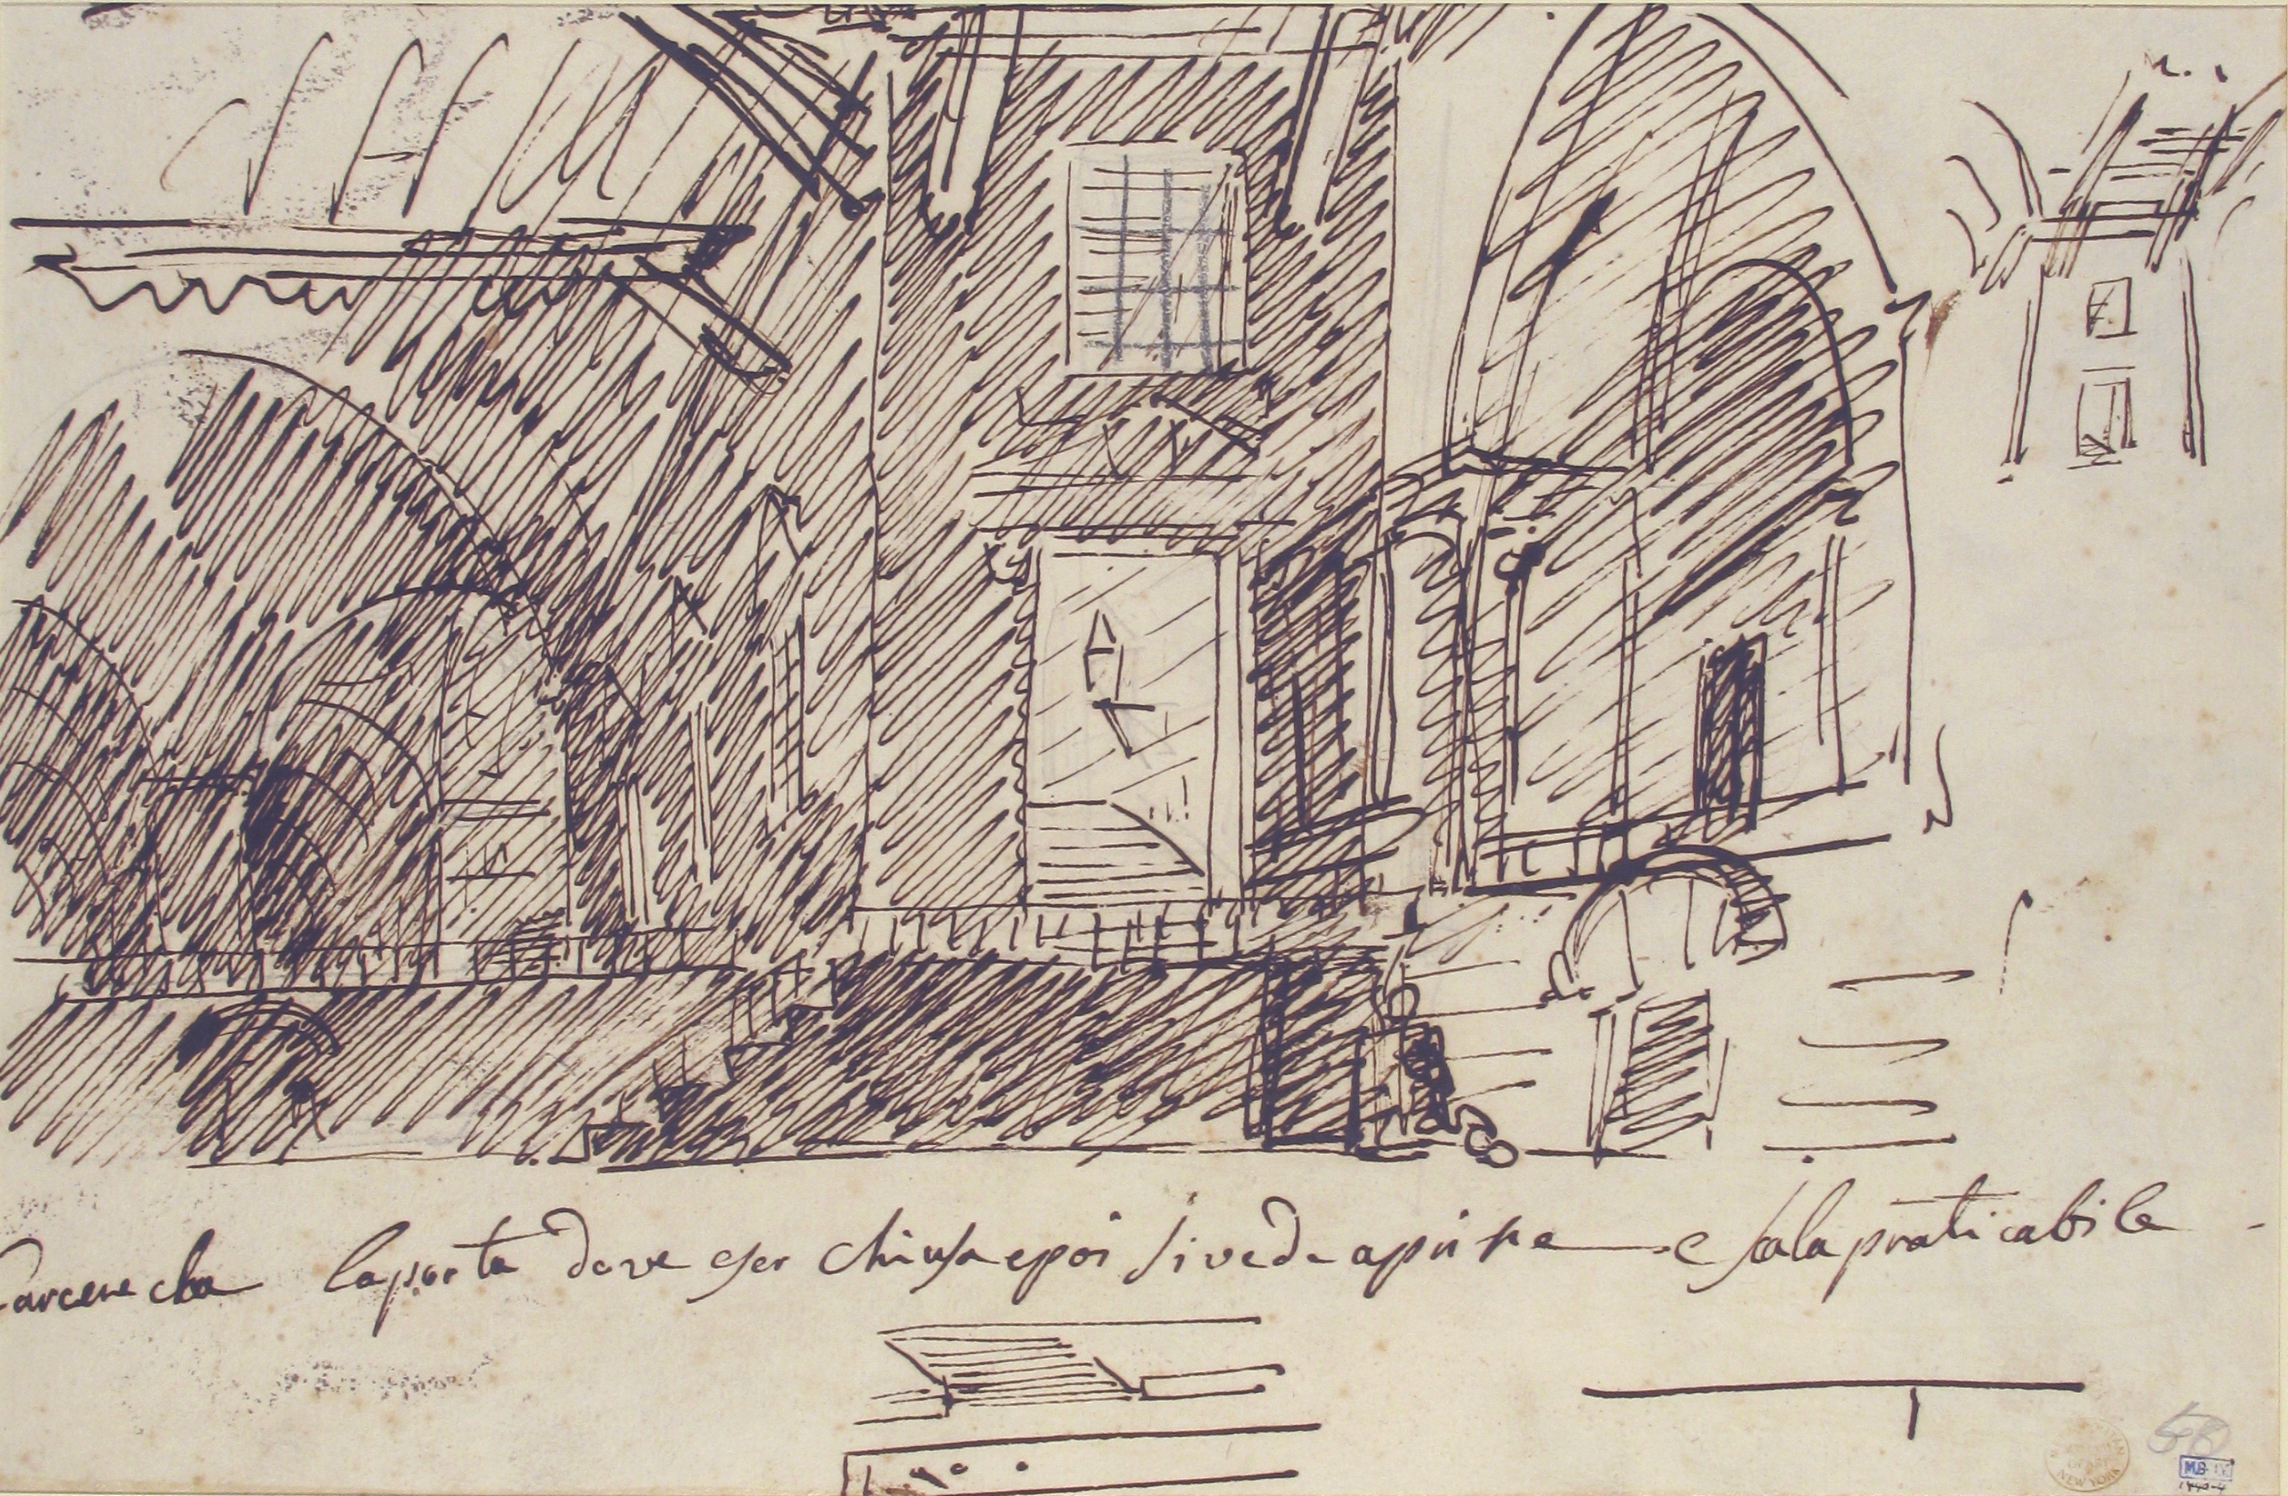 Carcere cha laporta dove eser chiusa epoi si vede aprire — e scala praticabile -
NEW YORK
68